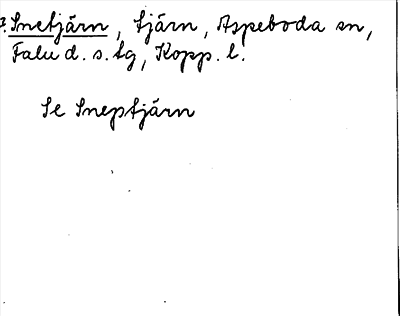 Snetjärn, tjärn, Aspeboda sn,
Falu d. s. tg, Kopp. l.
Se Sneptjärn